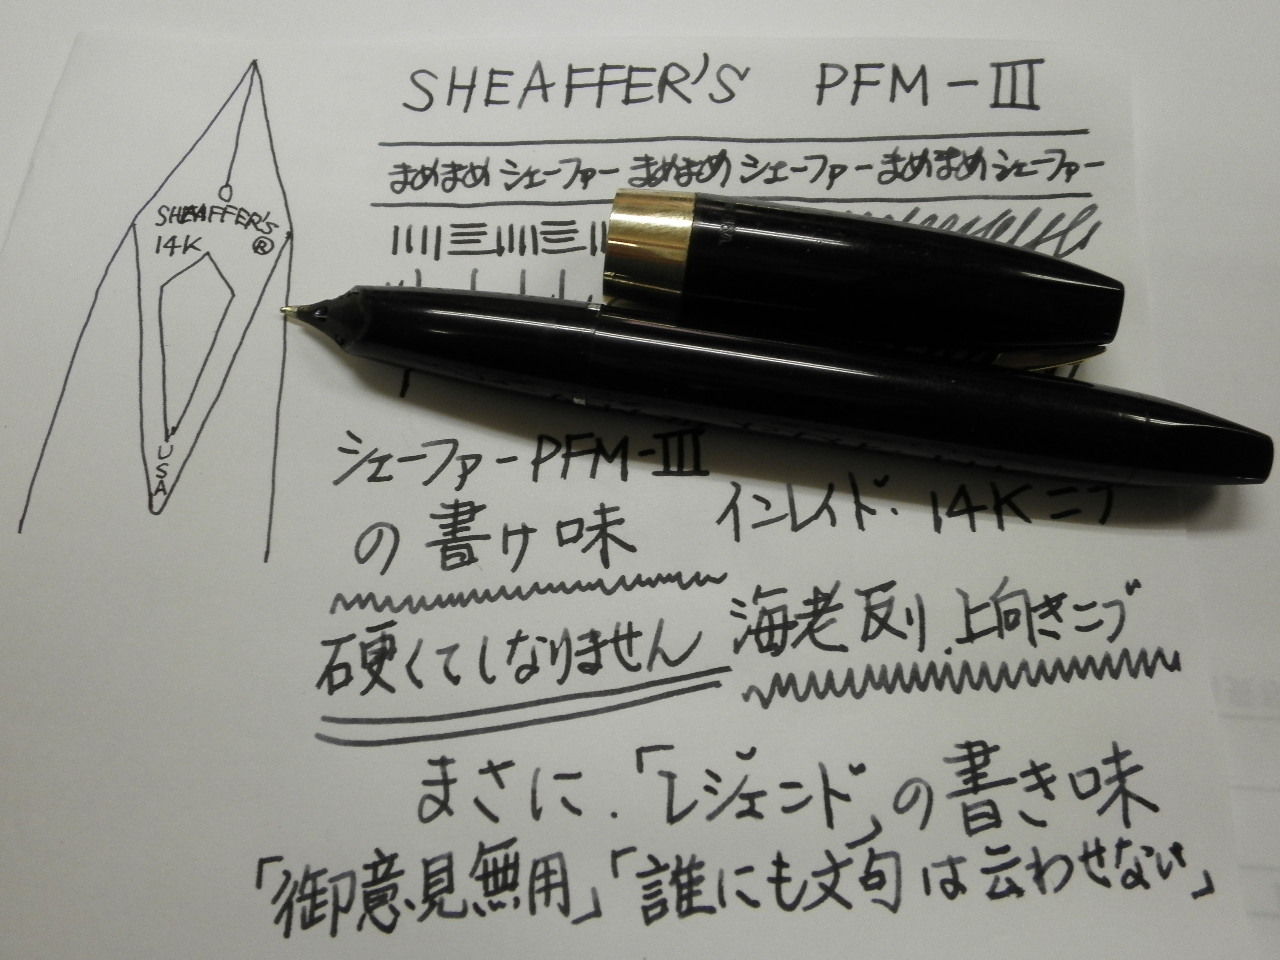 SHEAFFER'S PFM-III
まめまめ シェーファー まめまめ シェーファー まめまめ シェーファー
SHEAFFER'S
14K ®
USA
シェーファー PFM-III
の書け味
インレイド・14Kニブ
硬くてしなりません
海老反り上向きニブ
まさに.「レジェンド」の書き味
「御意見無用」「誰にも文句は云わせない」